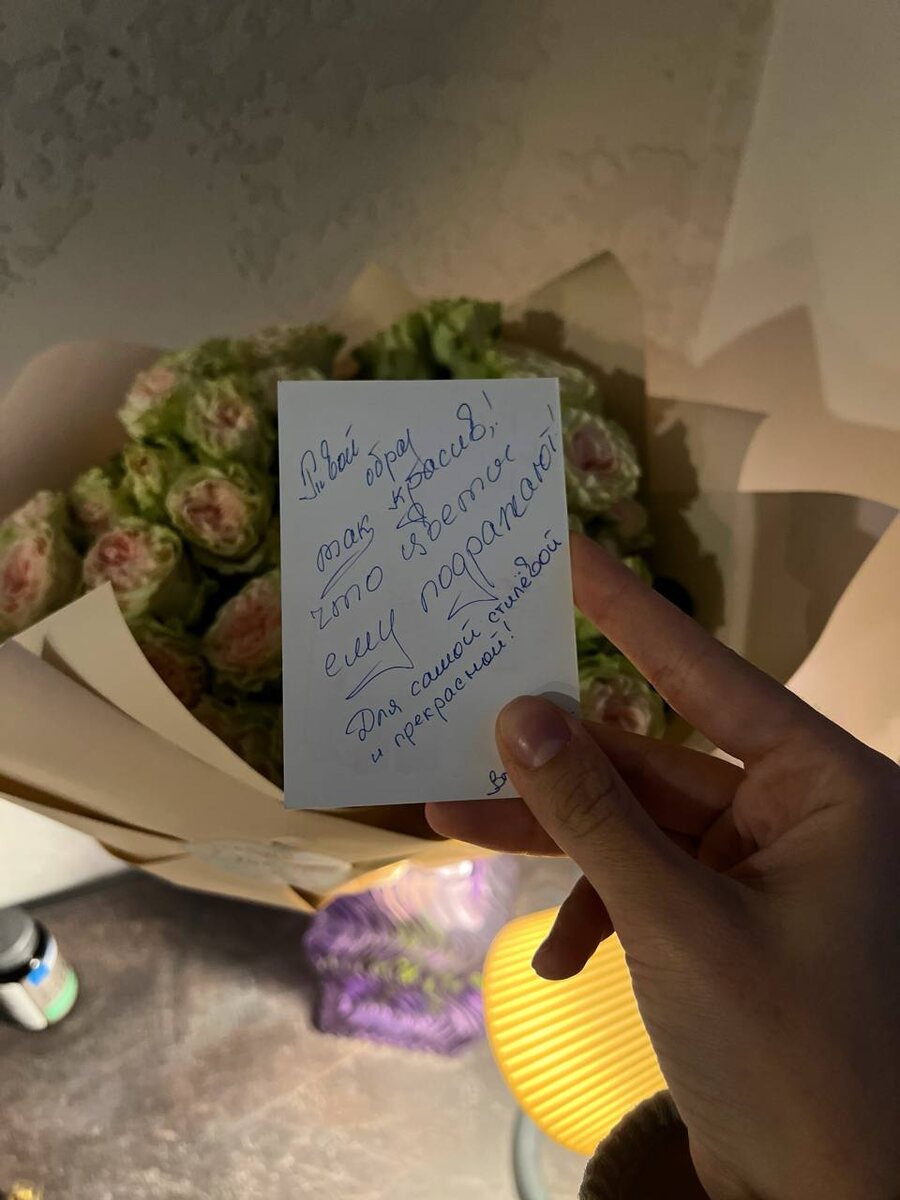 Твой образ
так красив,!
что цветы
ему подражают!
Для самой стилёвой
и прекрасной!